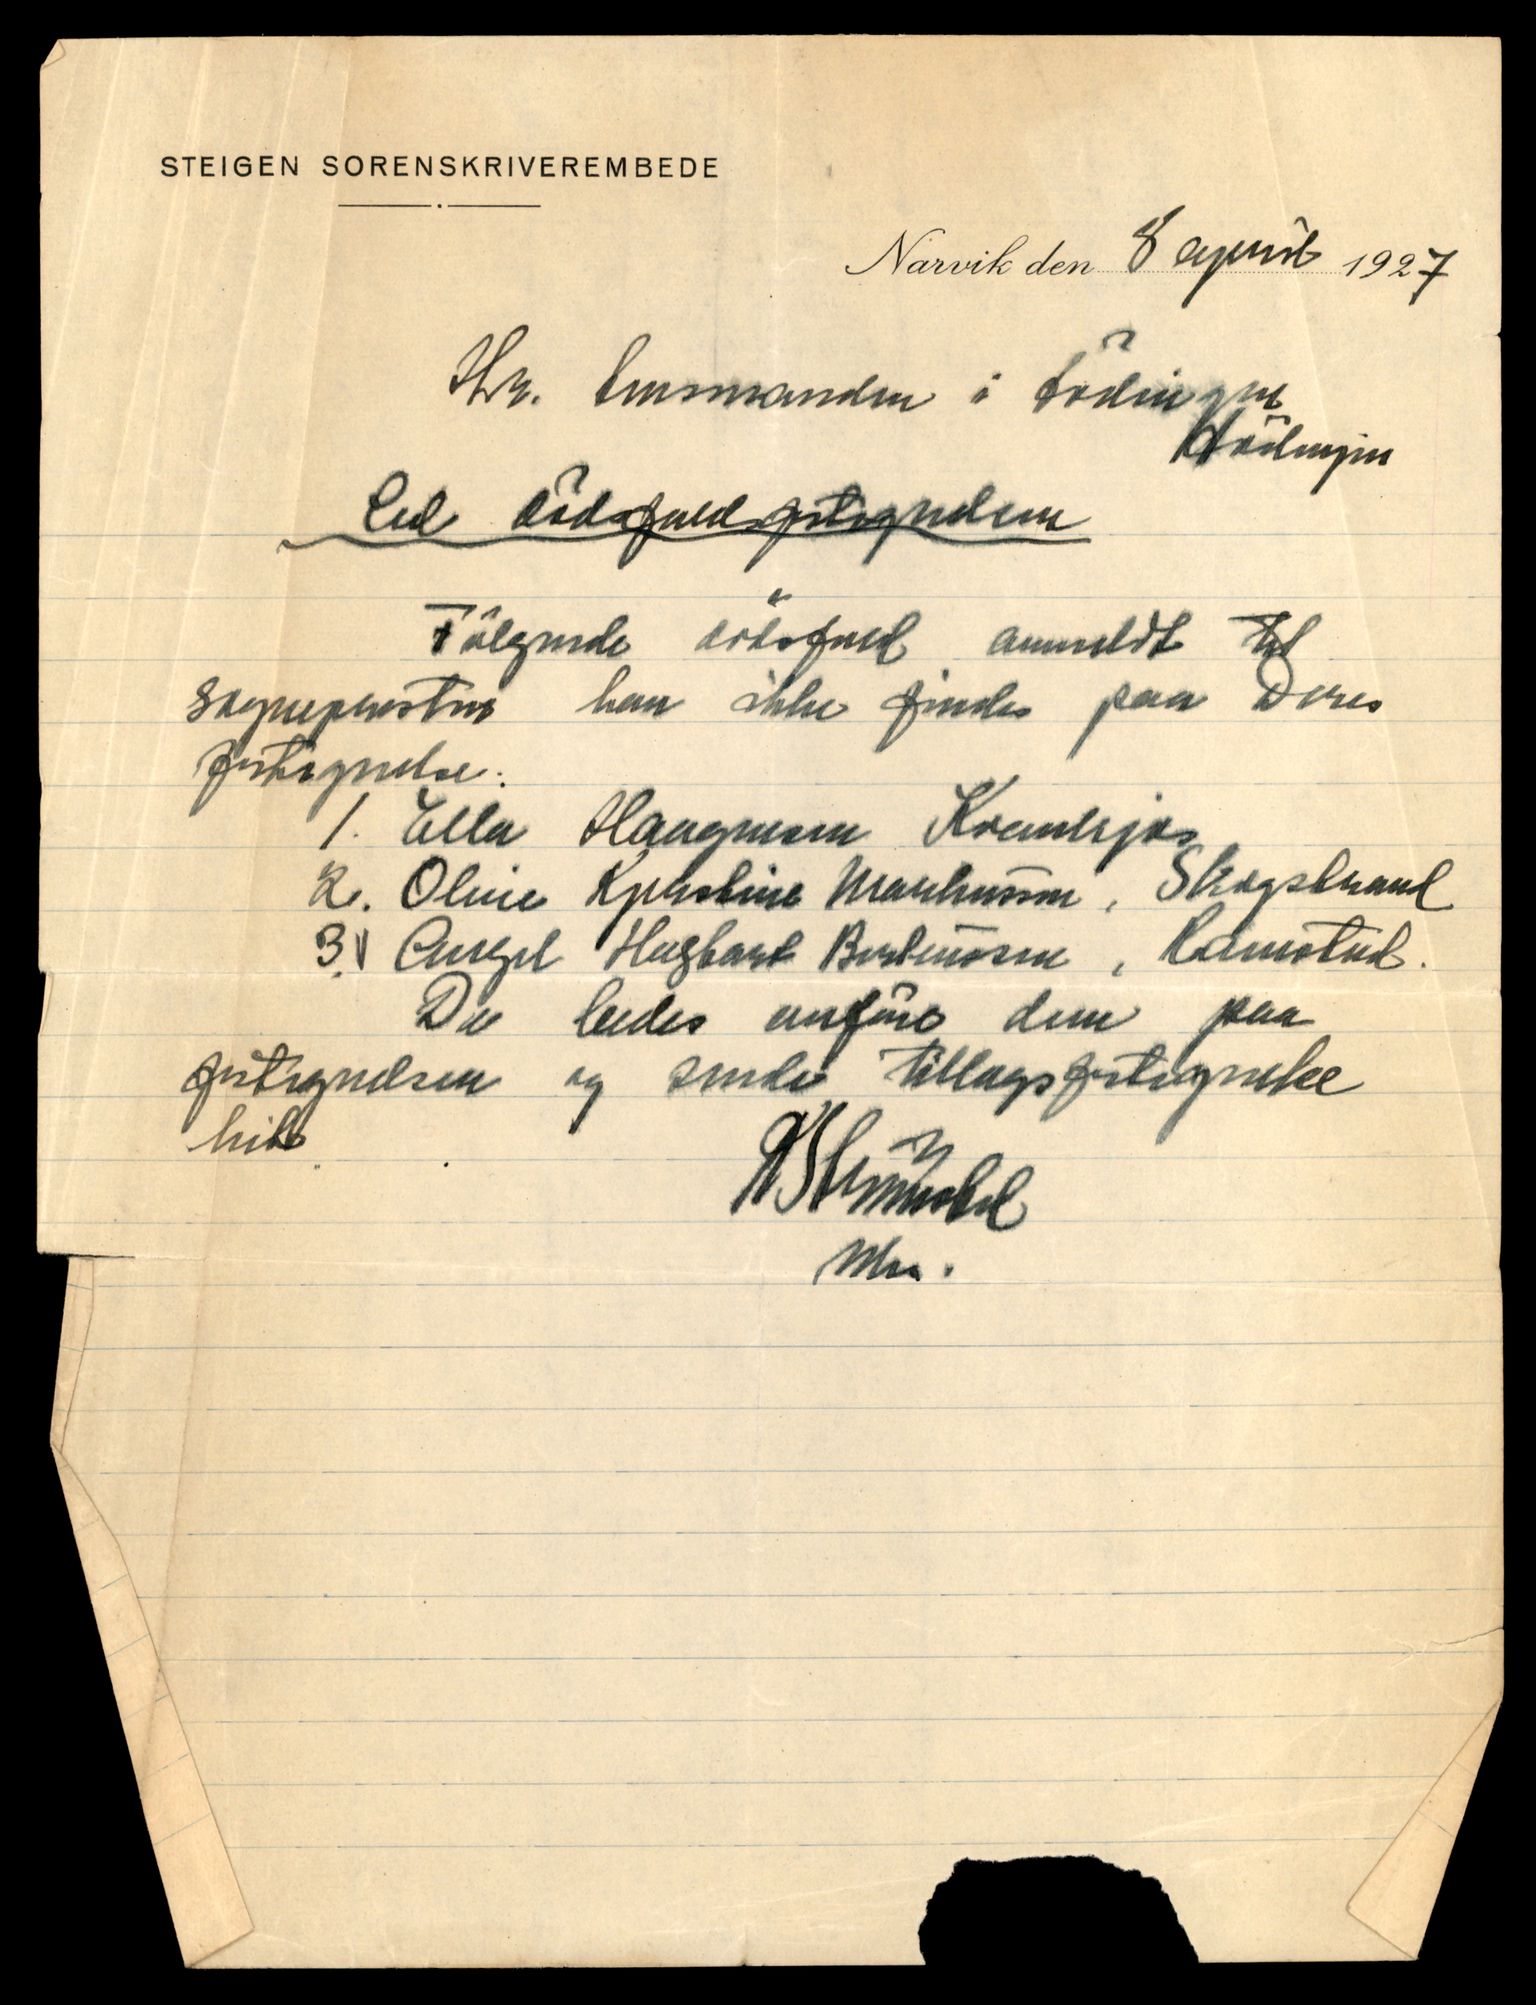 STEIGEN SORENSKRIVEREMBEDE
Narvik den 8 april 1927
Hr. lensmanden i Lödingen
Lödingen
Ved dödsfaldsfortegnelsen
Fölgende dödsfald anmeldt til
sogneprsten kan ikke findes paa Deres
fortegnelse:
1. Ella Haagensen
2. Oline Kjerstine Markussen, Skogstrand
3. Hagbart Bertinussen, Ramstad.
De bedes anföre dem paa
fortegnelsen og sende tillægsfortegnelse
hit.